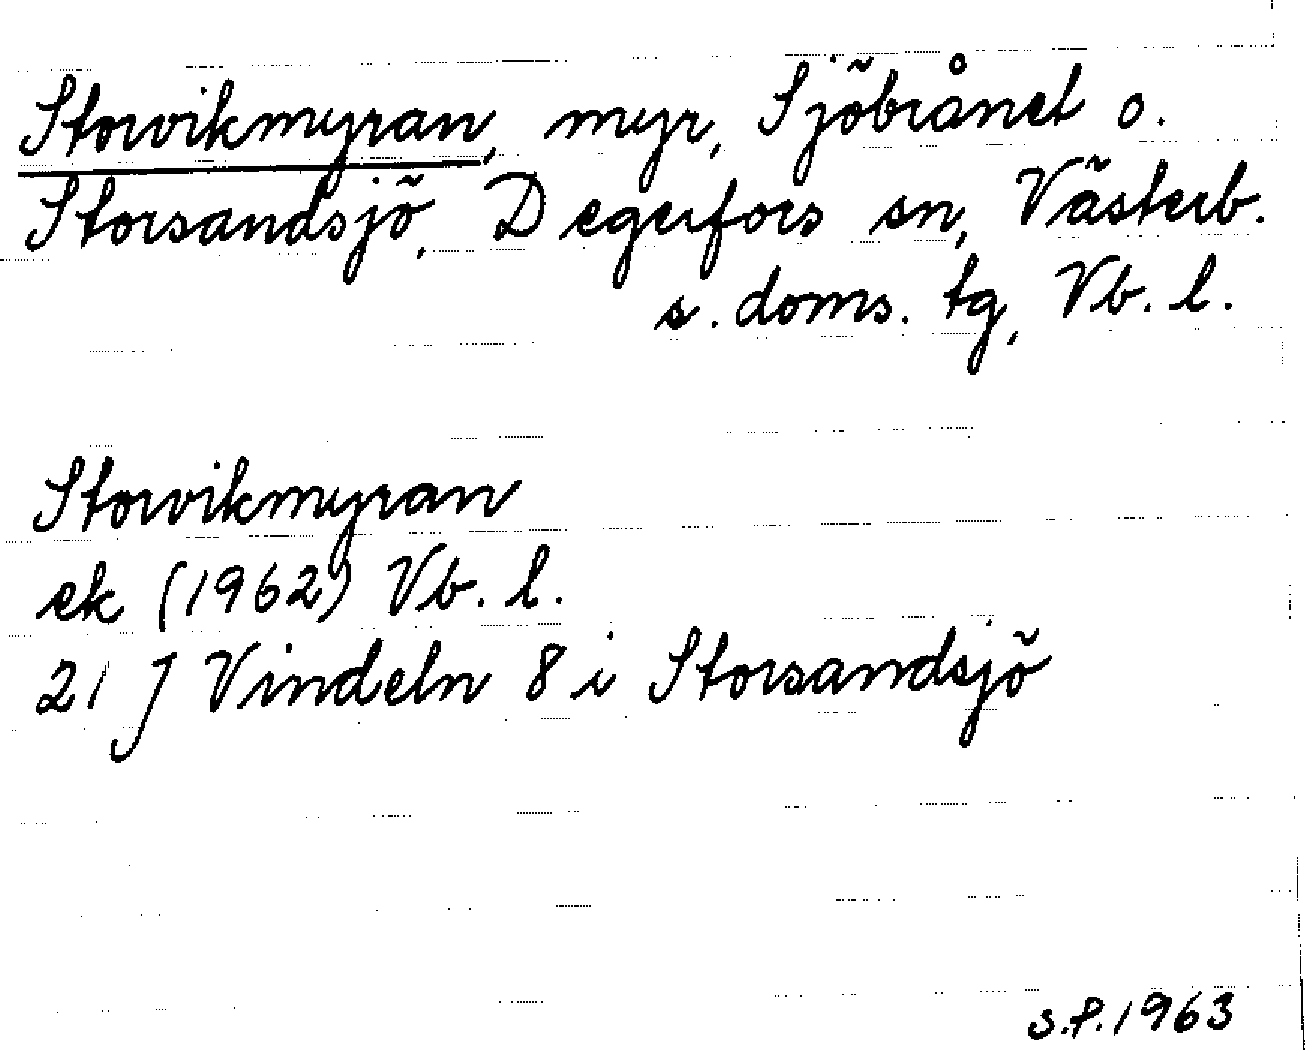 Storvikmyran, myr, Sjöbrånet o.
Storsandsjö, Degerfors sn, Västerb.
s. doms. tg, Vb. l.
Storvikmyran
ek (1962) Vb. l.
21 J Vindeln 8 i Storsandsjö
S.P. 1963